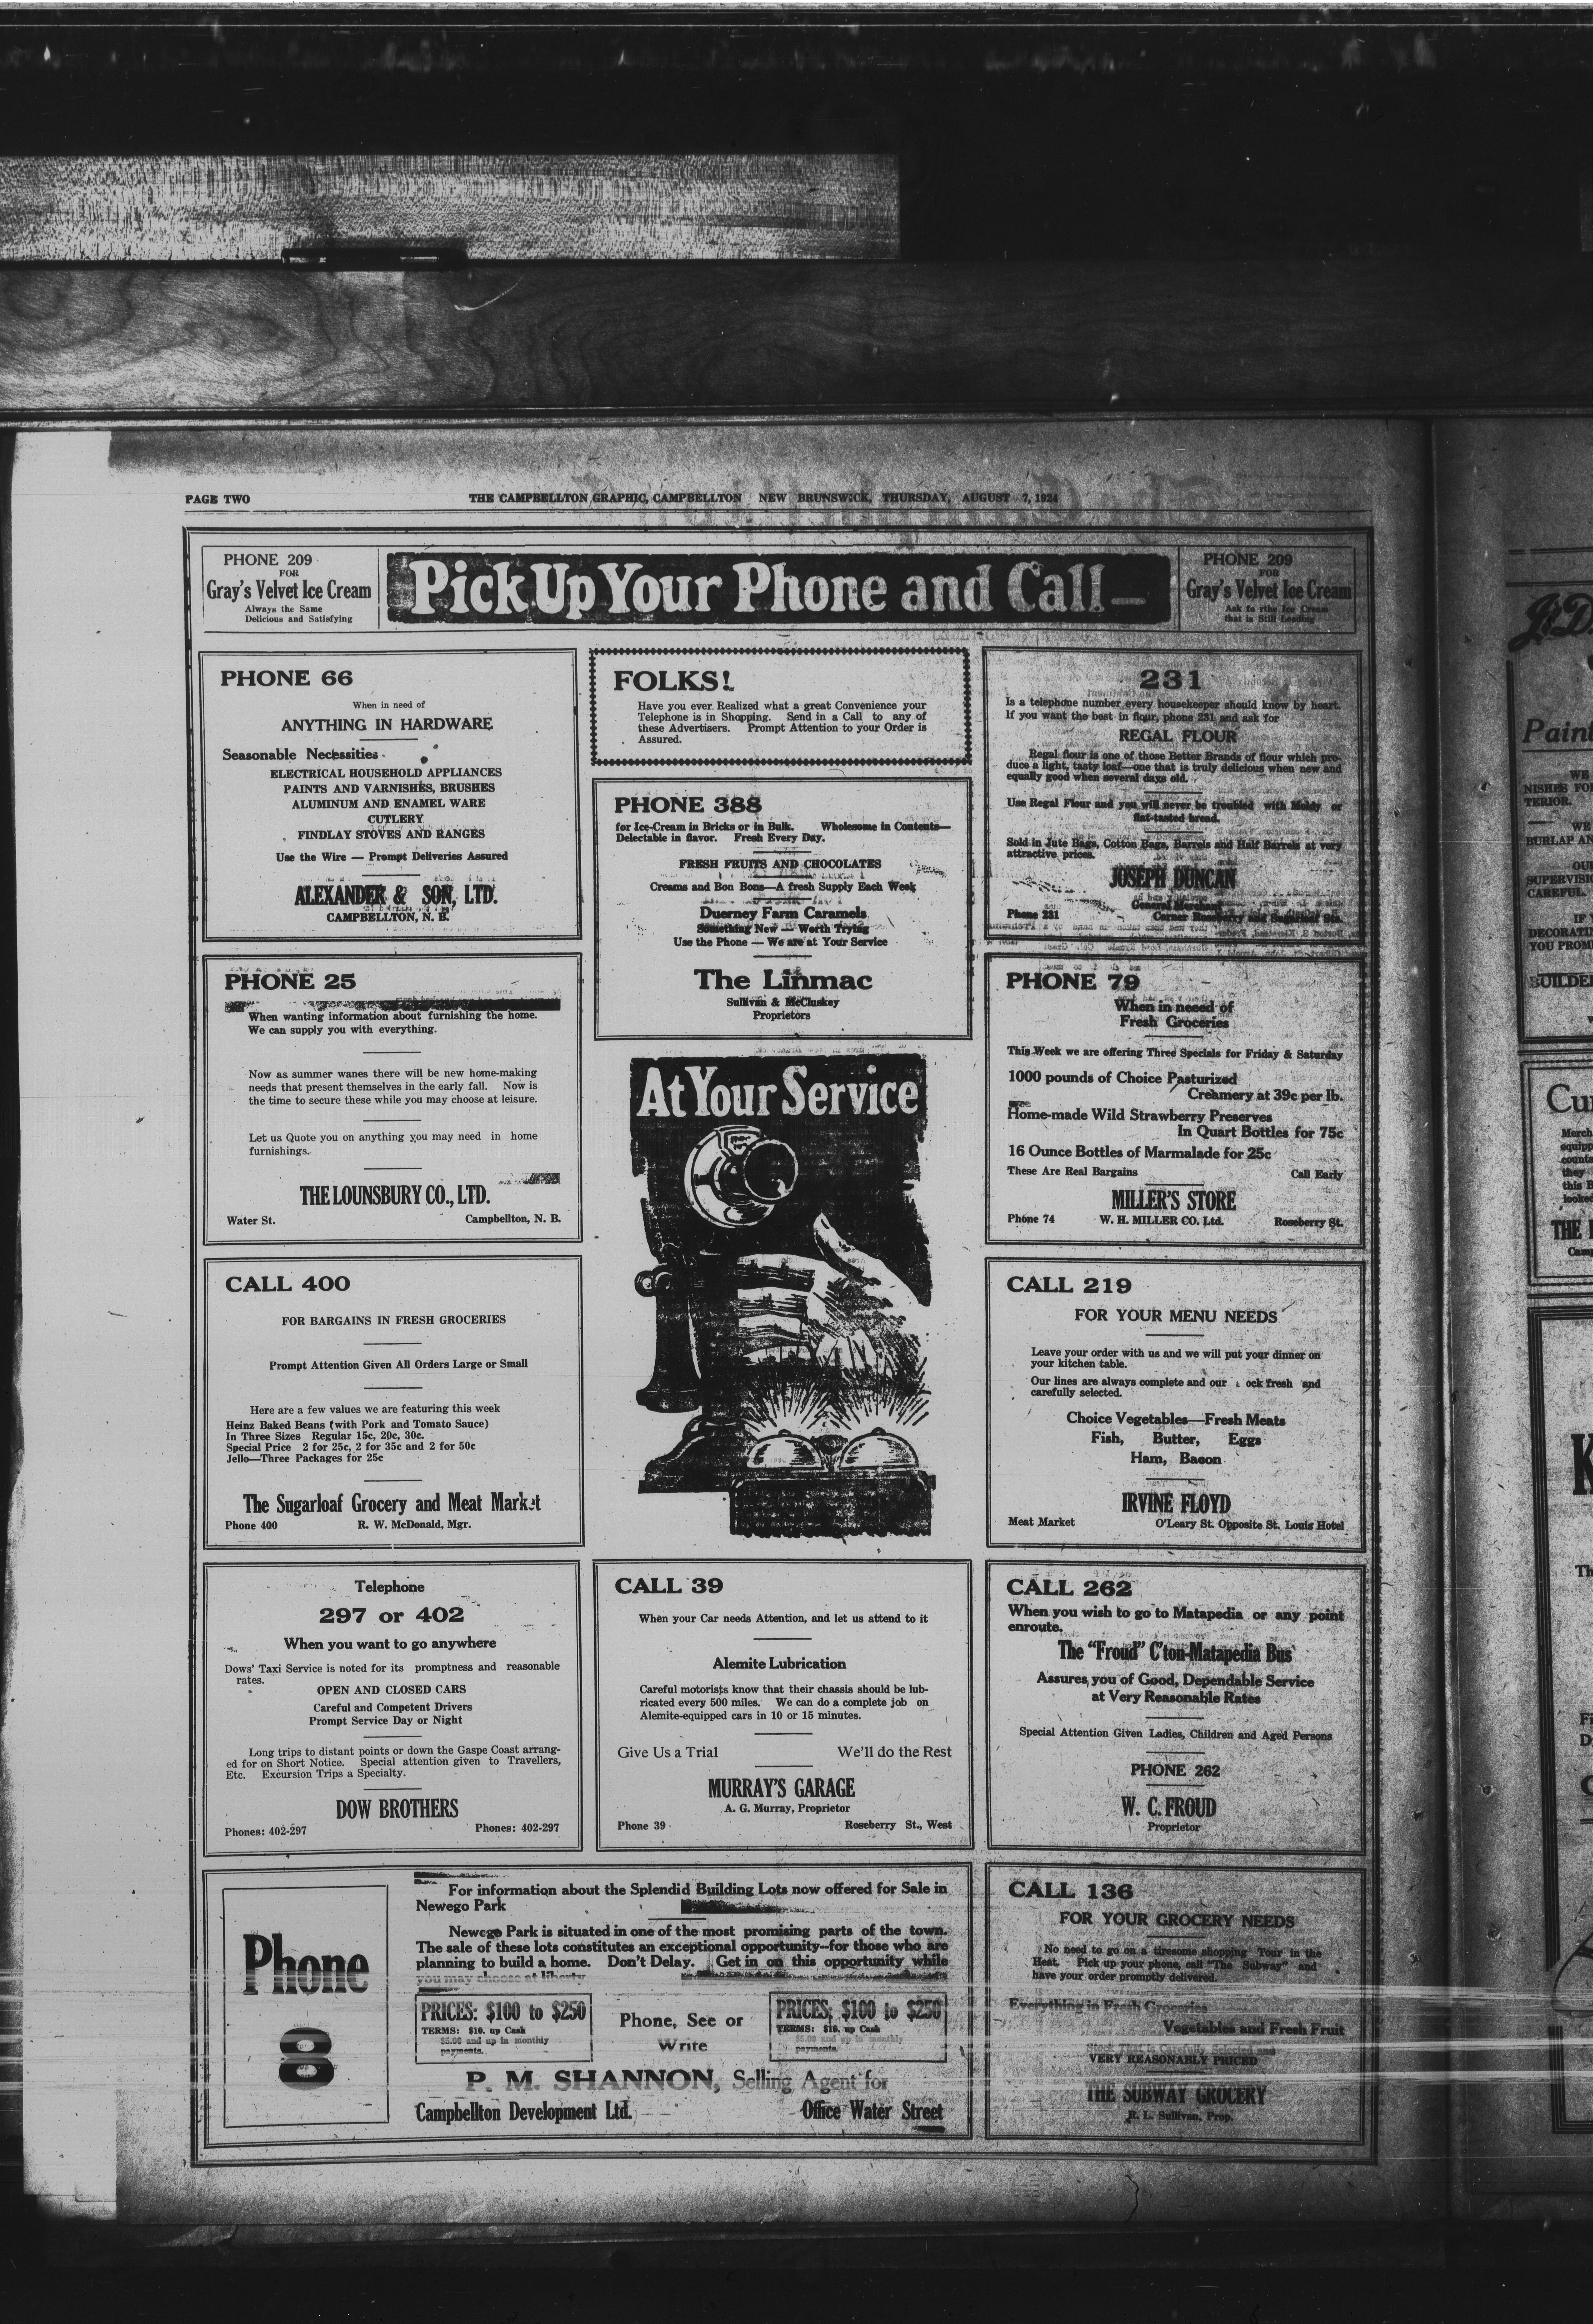 PAGE TWO
THE CAMPBELLTON GRAPHIC, CAMPBELLTON NEW BRUNSWICK, THURSDAY, AUGUST 7, 1924
PHONE 209
FOR
Gray's Velvet Ice Cream
Always the Same
Delicious and Satisfying
Pick Up Your Phone and Call—
PHONE 209
FOR
Gray's Velvet Ice Cream
Ask fo rthe Ice Cream
that is Still Leading
PHONE 66
When in need of
ANYTHING IN HARDWARE
Seasonable Necessities
ELECTRICAL HOUSEHOLD APPLIANCES
PAINTS AND VARNISHES, BRUSHES
ALUMINUM AND ENAMEL WARE
CUTLERY
FINDLAY STOVES AND RANGES
Use the Wire — Prompt Deliveries Assured
ALEXANDER & SON, LTD.
CAMPBELLTON, N. B.
PHONE 25
When wanting information about furnishing the home.
We can supply you with everything.
Now as summer wanes there will be new home-making
needs that present themselves in the early fall. Now is
the time to secure these while you may choose at leisure.
Let us Quote you on anything you may need in home
furnishings.
THE LOUNSBURY CO., LTD.
Water St. Campbellton, N. B.
CALL 400
FOR BARGAINS IN FRESH GROCERIES
Prompt Attention Given All Orders Large or Small
Here are a few values we are featuring this week
Heinz Baked Beans (with Pork and Tomato Sauce)
In Three Sizes Regular 15c, 20c, 30c.
Special Price 2 for 25c, 2 for 35c and 2 for 50c
Jello—Three Packages for 25c
The Sugarloaf Grocery and Meat Market
Phone 400 R. W. McDonald, Mgr.
Telephone
297 or 402
When you want to go anywhere
Dows' Taxi Service is noted for its promptness and reasonable
rates.
OPEN AND CLOSED CARS
Careful and Competent Drivers
Prompt Service Day or Night
Long trips to distant points or down the Gaspe Coast arrang-
ed for on Short Notice. Special attention given to Travellers,
Etc. Excursion Trips a Specialty.
DOW BROTHERS
Phones: 402-297 Phones: 402-297
FOLKS!
Have you ever Realized what a great Convenience your
Telephone is in Shopping. Send in a Call to any of
these Advertisers. Prompt Attention to your Order is
Assured.
PHONE 388
for Ice-Cream in Bricks or in Bulk. Wholesome in Contents—
Delectable in flavor. Fresh Every Day.
FRESH FRUITS AND CHOCOLATES
Creams and Bon Bons—A fresh Supply Each Week
Duerney Farm Caramels
Something New — Worth Trying
Use the Phone — We are at Your Service
The Linmac
Sullivan & McCluskey
Proprietors
At Your Service
CALL 39
When your Car needs Attention, and let us attend to it
Alemite Lubrication
Careful motorists know that their chassis should be lub-
ricated every 500 miles. We can do a complete job on
Alemite-equipped cars in 10 or 15 minutes.
Give Us a Trial We'll do the Rest
MURRAY'S GARAGE
A. G. Murray, Proprietor
Phone 39 Roseberry St., West
231
Is a telephone number every housekeeper should know by heart.
If you want the best in flour, phone 231 and ask for
REGAL FLOUR
Regal flour is one of those Better Brands of flour which pro-
duce a light, tasty loaf—one that is truly delicious when new and
equally good when several days old.
Use Regal Flour and you will never be troubled with Moldy or
flat-tasted bread.
Sold in Jute Bags, Cotton Bags, Barrels and Half Barrels at very
attractive prices.
JOSEPH DUNCAN
General Merchant
Phone 231 Corner Roseberry and Sts.
PHONE 79
When in neeed of
Fresh Groceries
This Week we are offering Three Specials for Friday & Saturday
1000 pounds of Choice Pasturized
Creamery at 39c per lb.
Home-made Wild Strawberry Preserves
In Quart Bottles for 75c
16 Ounce Bottles of Marmalade for 25c
These Are Real Bargains Call Early
MILLER'S STORE
Phone 74 W. H. MILLER CO. Ltd. Roseberry St.
CALL 219
FOR YOUR MENU NEEDS
Leave your order with us and we will put your dinner on
your kitchen table.
Our lines are always complete and our ock fresh and
carefully selected.
Choice Vegetables—Fresh Meats
Fish, Butter, Eggs
Ham, Bacon
IRVINE FLOYD
Meat Market O'Leary St. Opposite St. Louis Hotel
CALL 262
When you wish to go to Matapedia or any point
enroute.
The "Froud" C'ton-Matapedia Bus
Assures you of Good, Dependable Service
at Very Reasonable Rates
Special Attention Given Ladies, Children and Aged Persons
PHONE 262
W. C. FROUD
Proprietor
Phone
8
For information about the Splendid Building Lots now offered for Sale in
Newego Park
Newego Park is situated in one of the most promising parts of the town.
The sale of these lots constitutes an exceptional opportunity—for those who are
planning to build a home. Don't Delay. Get in on this opportunity while
you may choose at liberty
PRICES: $100 to $250
TERMS: $10. up Cash
$5.00 and up in monthly
payments.
Phone, See or
Write
PRICES: $100 to $250
TERMS: $10. up Cash
$5.00 and up in monthly
payments.
P. M. SHANNON, Selling Agent for
Campbellton Development Ltd. Office Water Street
CALL 136
FOR YOUR GROCERY NEEDS
No need to go on a tiresome shopping Tour in the
Heat. Pick up your phone, call "The Subway" and
have your order promptly delivered.
Everything in Fresh Groceries
Vegetables and Fresh Fruit
Stock That is Carefully Selected and
VERY REASONABLY PRICED
THE SUBWAY GROCERY
R. L. Sullivan, Prop.